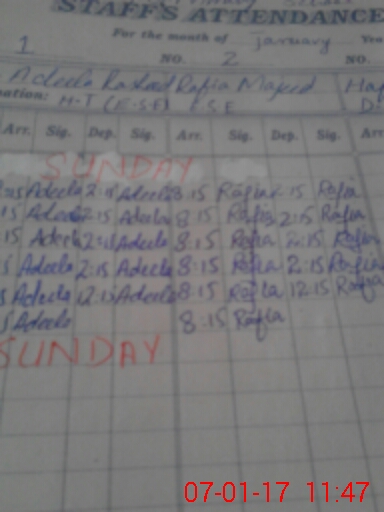 STAFF'S ATTENDANCE
For the month of January Yea
1 NO. 2 NO.
Adeela Rashid Rafia Majeed
nation: H-T (E.S.E) E.S.E
Arr. Sig. Dep. Sig. Arr. Sig. Dep. Sig. Arr.
SUNDAY
:15 Adeela 2:15 Adeela 8:15 Rafia 2:15 Rafia
15 Adeela 2:15 Adeela 8:15 Rafia 2:15 Rafia
15 Adeela 2:15 Adeela 8:15 Rafia 2:15 Rafia
5 Adeela 2:15 Adeela 8:15 Rafia 2:15 Rafia
5 Adeela 12:15 Adeela 8:15 Rafia 12:15 Rafia
5 Adeela 8:15 Rafia
SUNDAY
07-01-17 11:47